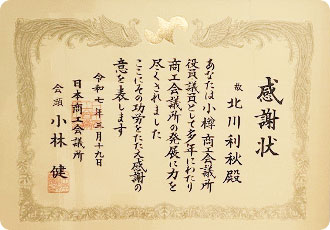 感謝状
故 北川利秋殿
あなたは小樽商工会議所
役員議員として多年にわたり
商工会議所の発展に力を
尽くされました
ここにその功労をたたえ感謝の
意を表します
令和七年三月十九日
日本商工会議所
会頭 小林 健